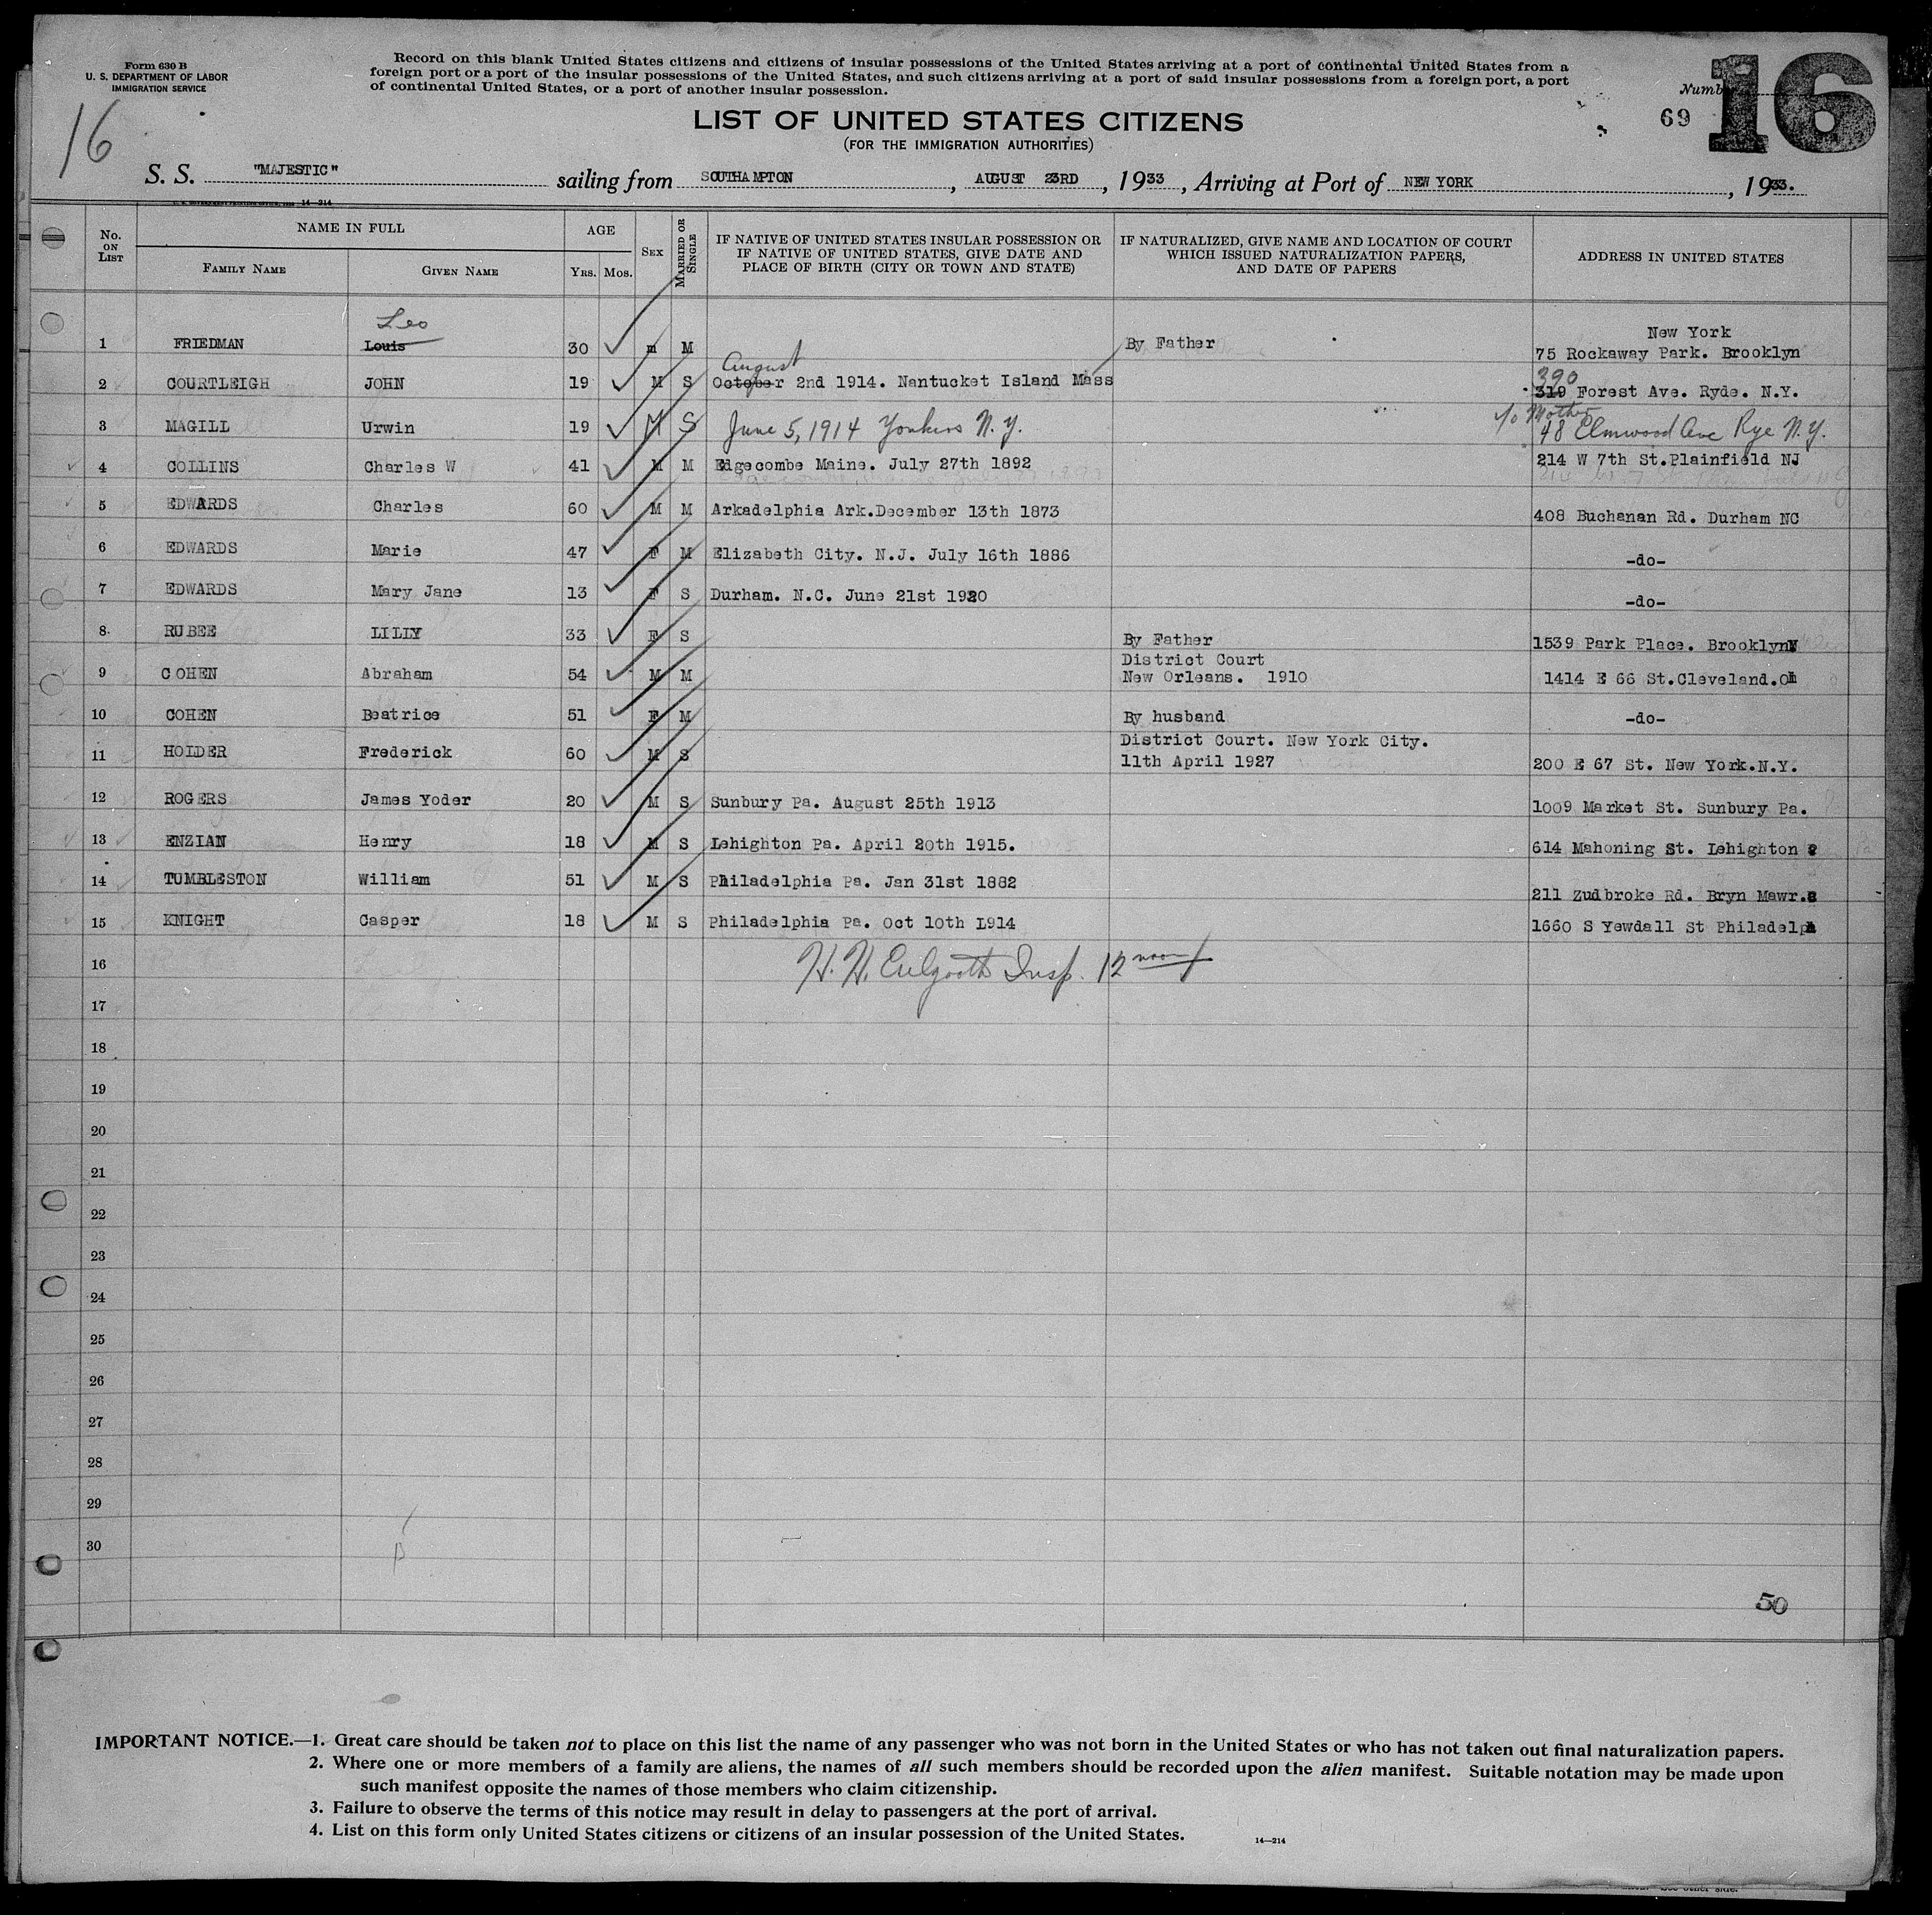 Form 630 B
U. S. DEPARTMENT OF LABOR
IMMIGRATION SERVICE
Record on this blank United States citizens and citizens of insular possessions of the United States arriving at a port of continental United States from a
foreign port or a port of the insular possessions of the United States, and such citizens arriving at a port of said insular possessions from a foreign port, a port
of continental United States, or a port of another insular possession.
16
16
69
LIST OF UNITED STATES CITIZENS
(FOR THE IMMIGRATION AUTHORITIES)
S. S. "MAJESTIC" sailing from SOUTHAMPTON, AUGUST 23RD, 1933, Arriving at Port of NEW YORK, 1933.
14—214
No. ON LIST
NAME IN FULL
FAMILY NAME GIVEN NAME
AGE
YRS. MOS.
SEX
MARRIED OR SINGLE
IF NATIVE OF UNITED STATES INSULAR POSSESSION OR
IF NATIVE OF UNITED STATES, GIVE DATE AND
PLACE OF BIRTH (CITY OR TOWN AND STATE)
IF NATURALIZED, GIVE NAME AND LOCATION OF COURT
WHICH ISSUED NATURALIZATION PAPERS,
AND DATE OF PAPERS
ADDRESS IN UNITED STATES
Leo New York
1 FRIEDMAN Louis 30 m M By Father 75 Rockaway Park. Brooklyn
August 390
2 COURTLEIGH JOHN 19 M S October 2nd 1914. Nantucket Island Mass 319 Forest Ave. Ryde. N.Y.
c/o Mother
3 MAGILL Urwin 19 M S June 5, 1914 Yonkers N.Y. 48 Elmwood Ave Rye N.Y.
4 COLLINS Charles W 41 M M Edgecombe Maine. July 27th 1892 214 W 7th St.Plainfield NJ
5 EDWARDS Charles 60 M M Arkadelphia Ark.December 13th 1873 408 Buchanan Rd. Durham NC
6 EDWARDS Marie 47 F M Elizabeth City. N.J. July 16th 1886 -do-
7 EDWARDS Mary Jane 13 F S Durham. N.C. June 21st 1920 -do-
8 RUBEE LILLY 33 F S By Father 1539 Park Place. Brooklyn
District Court
9 COHEN Abraham 54 M M New Orleans. 1910 1414 E 66 St.Cleveland.Oh
10 COHEN Beatrice 51 F M By husband -do-
District Court. New York City.
11 HOLDER Frederick 60 M S 11th April 1927 200 E 67 St. New York.N.Y.
12 ROGERS James Yoder 20 M S Sunbury Pa. August 25th 1913 1009 Market St. Sunbury Pa.
13 ENZIAN Henry 18 M S Lehighton Pa. April 20th 1915. 614 Mahoning St. Lehighton
14 TUMBLESTON William 51 M S Philadelphia Pa. Jan 31st 1882 211 Zudbroke Rd. Bryn Mawr.
15 KNIGHT Casper 18 M S Philadelphia Pa. Oct 10th 1914 1660 S Yewdall St Philadelph
16 H. H. Insp. 12 noon
17
18
19
20
21
22
23
24
25
26
27
28
29
30
50
IMPORTANT NOTICE.—1. Great care should be taken not to place on this list the name of any passenger who was not born in the United States or who has not taken out final naturalization papers.
2. Where one or more members of a family are aliens, the names of all such members should be recorded upon the alien manifest. Suitable notation may be made upon
such manifest opposite the names of those members who claim citizenship.
3. Failure to observe the terms of this notice may result in delay to passengers at the port of arrival.
4. List on this form only United States citizens or citizens of an insular possession of the United States.
14—214